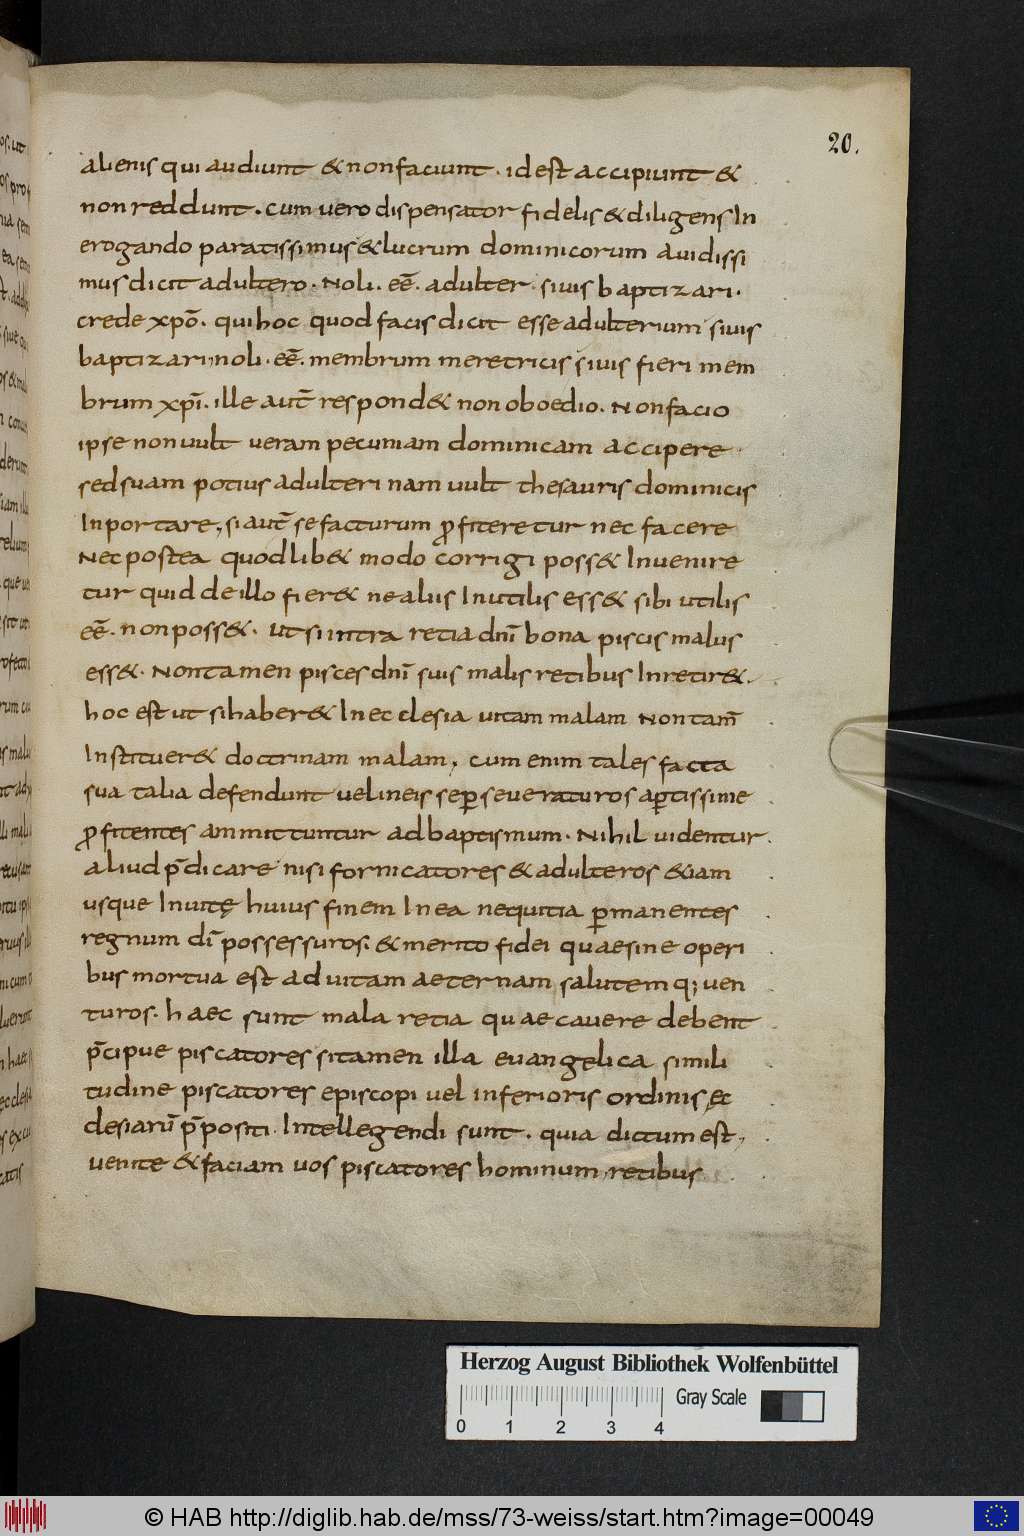 20.
alienis qui audiunt & non faciunt. id est accipiunt &
non reddunt. cum vero dispensator fidelis & diligens In
erogando paratissimus & lucrum dominicorum avidissi
mus dicit adultero. Noli. eē. adulter. si uis baptizari.
crede xpō. qui hoc quod facis dicit esse adulterium si uis
baptizari, noli. eē. membrum meretricis si uis fieri mem
brum xpī. ille aut̄ respond& non oboedio. Non facio
ipse non uult ueram pecuniam dominicam accipere.
sed suam potius adulterinam uult thesauris dominicis
Inportare, si aut̄ se facturum ꝓfiteretur nec facere
Nec postea quod lib& modo corrigi poss& Inuenire
tur quid de illo fier& ne aliis Inutilis ess& sibi utilis
eē. non poss&. ut si intra retia dnī bona piscis malus
ess&. Non tamen pisces dnī suis malis retibus Inretir&.
hoc est ut si haber& In ecclesia uitam malam Non tam̄
Instituer& doctrinam malam, cum enim tales facta
sua talia defendunt uel in eis se ꝑseueraturos aꝑtissime
ꝓfitentes ammittuntur ad baptismum. Nihil uidentur
aliud p̄dicare nisi fornicatores & adulteros &iam
usque In uitę huius finem In ea nequitia ꝑmanentes
regnum dī possessuros. & merito fidei quae sine operi
bus mortua est ad uitam aeternam salutemq; uen
turos. haec sunt mala retia quae cauere debent
p̄cipue piscatores si tamen illa euangelica simili
tudine piscatores episcopi uel inferioris ordinis ęc
clesiarū p̄positi Intellegendi sunt. quia dictum est,
uenite & faciam uos piscatores hominum, retibus
Herzog August Bibliothek Wolfenbüttel
Gray Scale
0 1 2 3 4
© HAB http://diglib.hab.de/mss/73-weiss/start.htm?image=00049